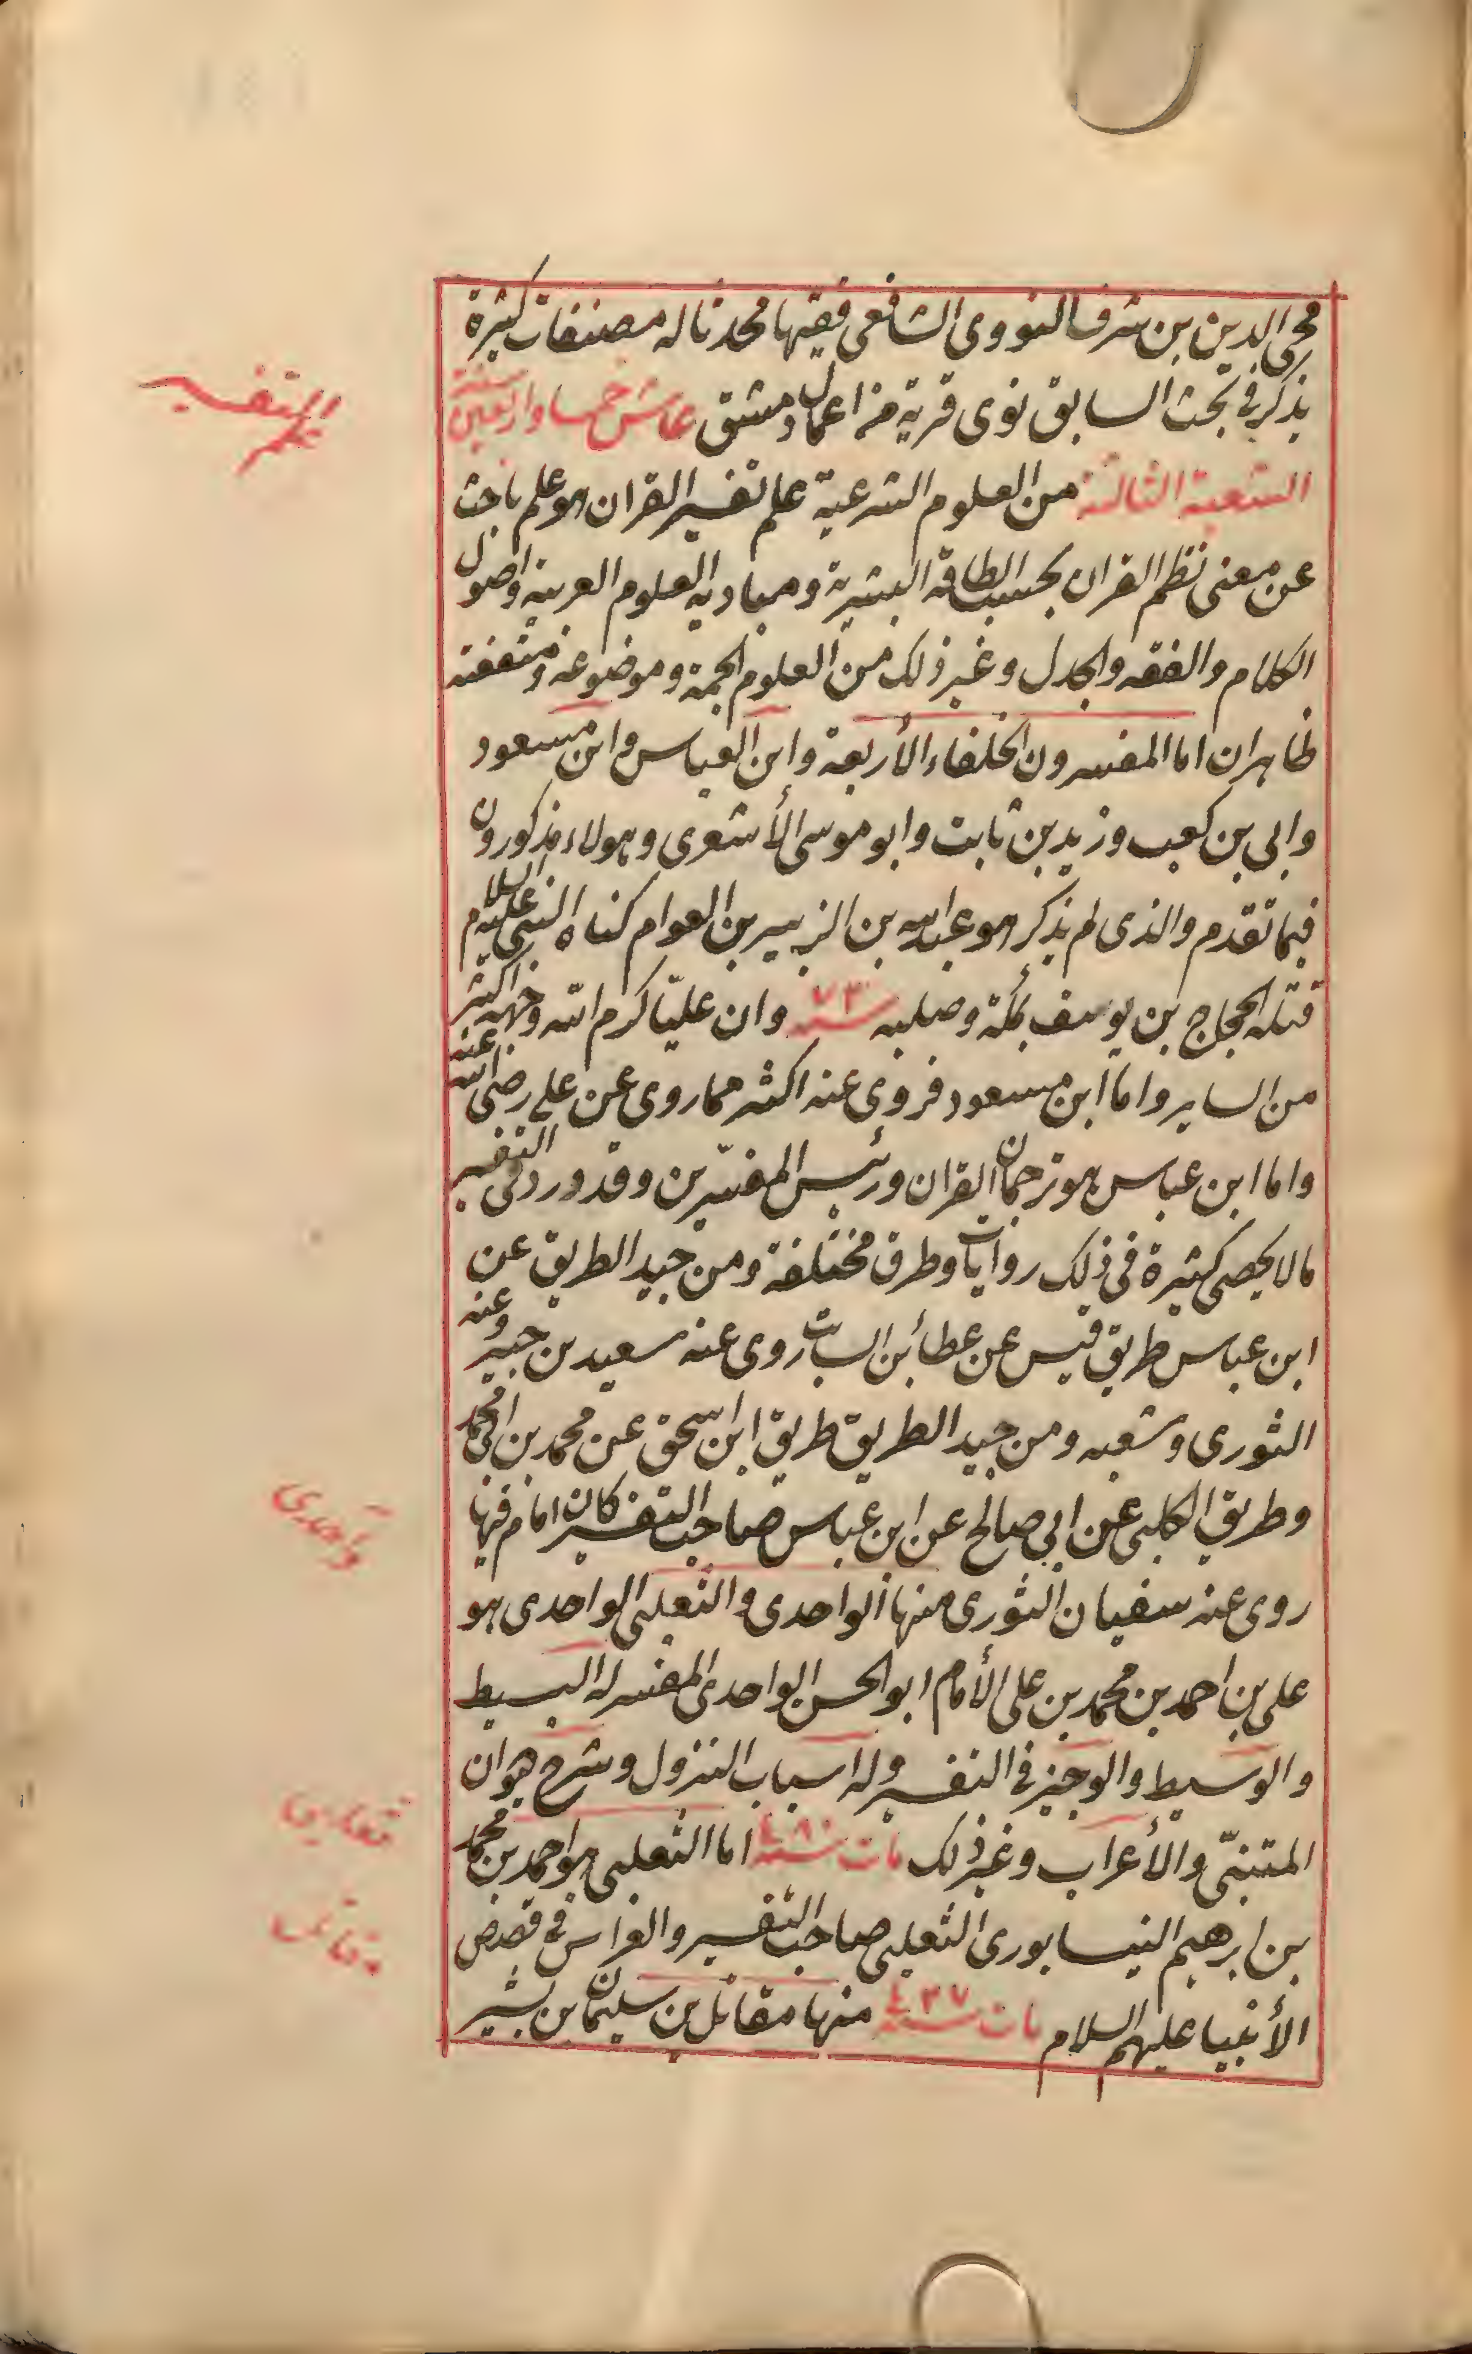 محي الدين بن شرف النووى الشافعى فقيها محدثا له مصنفات كثيرة
يذكر فى بحث السابق نوى قرية من اعمال دمشق عاش خمسا واربعين سنة
الشعبة الثالثة من العلوم الشرعية علم تفسير القران هو علم باحث
علم التفسير
عن معنى نظم القران بحسب الطاقة البشرية ومباديه العلوم العربية واصول
الكلام والفقه والجدل وغير ذلك من العلوم الجمة وموضوعه ومنفعته
ظاهران اما المفسرون الخلفاء الأربعة وابن العباس وابن مسعود
وابى بن كعب وزيد بن ثابت وابو موسى الأشعرى وهولاء مذكورون
فيما تقدم والذى لم يذكر هو عبد الله بن الزبير بن العوام كناه النبى عليه السلام
قتله الحجاج بن يوسف بمكة وصلبه سنة ٧٣ وان عليّا كرم الله وجهه اكثر
من الساير واما ابن مسعود فروى عنه اكثر مما روى عن على رضى الله عنه
واما ابن عباس هو ترجمان القران ورئيس المفسّرين وقد ورد فى التفسير
مالا يحصى كثيرة فى ذلك روايات وطرق مختلفة ومن جيد الطريق عن
ابن عباس طريق قيس عن عطائبن السائب روى عنه سعيد بن جبير وعنه
الثورى وشعبه ومن جيد الطريق طريق ابن اسحق عن محمد بن ابى محمد
وطريق الكلبى عن ابى صالح عن ابن عباس صاحب التفسير كان امام فيها
واحدى
روى عنه سفيان الثورى منها الواحدى والثعلبى الواحدى هو
على بن احمد بن محمد بن على الأمام ابو الحسن الواحدى المفسر له البسيط
والوسيط والوجيز فى التفسير وله اسباب النزول وشرح ديوان
المتنبّى والأعراب وغير ذلك مات سنة ٤٨٠ اما الثعلبى هو احمد بن محمد
ثعلبى
بن ابرهيم النيسابورى الثعلبى صاحب التفسير والعرائس فى قصص
مقاتل
الأنبيا عليهم السلام مات سنة ٤٢٧ منها مقاتل بن سليمان بن بشير